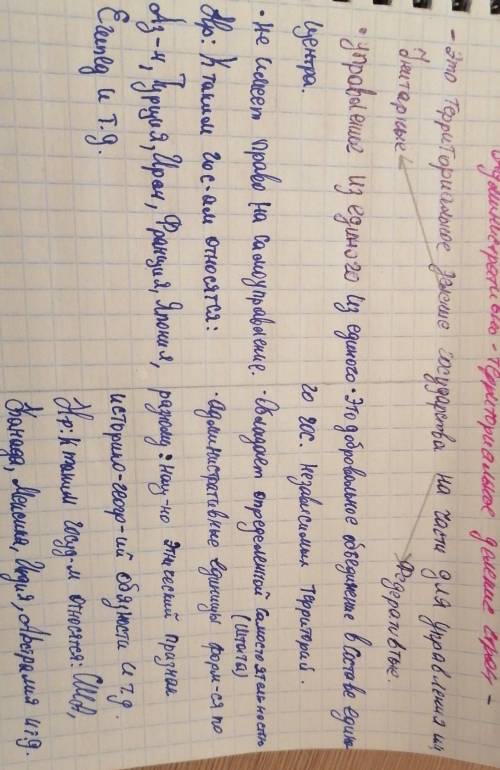 Административно-территориальное деление стран -
- это территориальное деление государства на части для управления им
Унитарные Федеративные.
• управление из единого из единого
центра.
• не имеет право на самоуправление.
Нр: К таким гос-ам относятся:
Аз-н, Турция, Иран, Франция, Япония,
Египед и т.д.
• Это добровольное объединение в составе едино
го гос. независимых территорий.
• Обладает определенной самостоятельностью
(штата)
• административные единицы форм-ся по
разному: нац-но этнический признак
историко-геогр-ий общности и т.д.
Нр: К таким госуд-м относятся: США,
Канада, Мексика, Индия, Австралия и т.д.